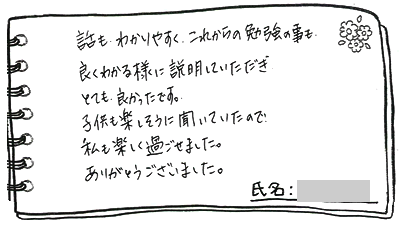 話も、わかりやすく、これからの勉強の事も、
良くわかる様に説明していただき
とても良かったです。
子供も楽しそうに聞いていたので
私も楽しく過ごせました。
ありがとうございました。
氏名: